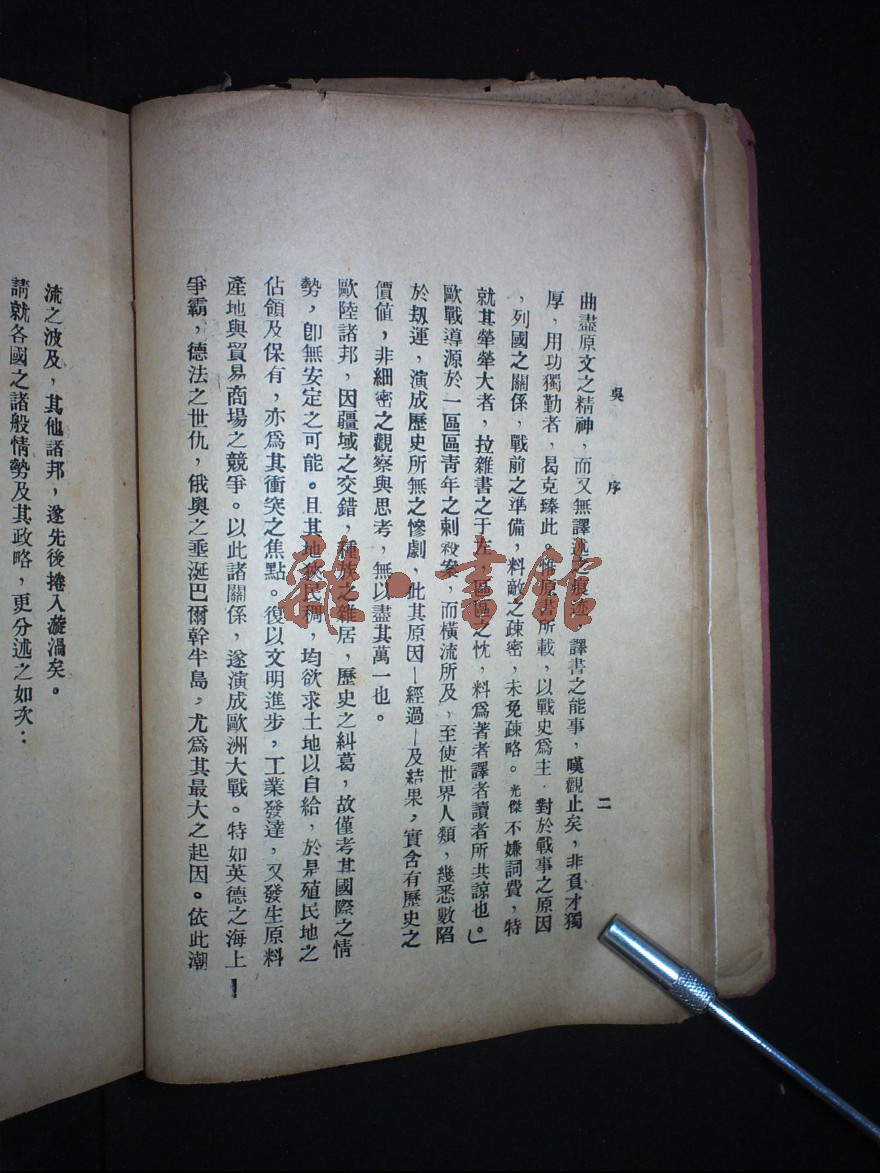 吳序
二
曲盡原文之精神，而又無譯述之痕迹，譯書之能事，嘆觀止矣，非負才獨
厚，用功獨勤者，曷克臻此。惟原書所載，以戰史爲主．對於戰事之原因
，列國之關係，戰前之準備，料敵之疎密，未免疎略。光傑不嫌詞費，特
就其犖犖大者，拉雜書之于左，區區之忱，料爲著者譯者讀者所共諒也。」
歐戰導源於一區區靑年之刺殺案，而橫流所及，至使世界人類，幾悉數陷
於刼運，演成歷史所無之慘劇，此其原因—經過—及結果，實含有歷史之
價値，非細密之觀察與思考，無以盡其萬一也。
歐陸諸邦，因疆域之交錯，種族之雜居，歷史之糾葛，故僅考其國際之情
勢，卽無安定之可能。且其地狄民稠，均欲求土地以自給，於是殖民地之
佔領及保有，亦爲其衝突之焦點。復以文明進步，工業發達，又發生原料
產地與貿易商場之競爭。以此諸關係，遂演成歐洲大戰。特如英德之海上
爭霸，德法之世仇，俄奧之垂涎巴爾幹半島，尤爲其最大之起因。依此潮
流之波及，其他諸邦，遂先後捲入漩渦矣。
請就各國之諸般情勢及其政略，更分述之如次：
雜·書館